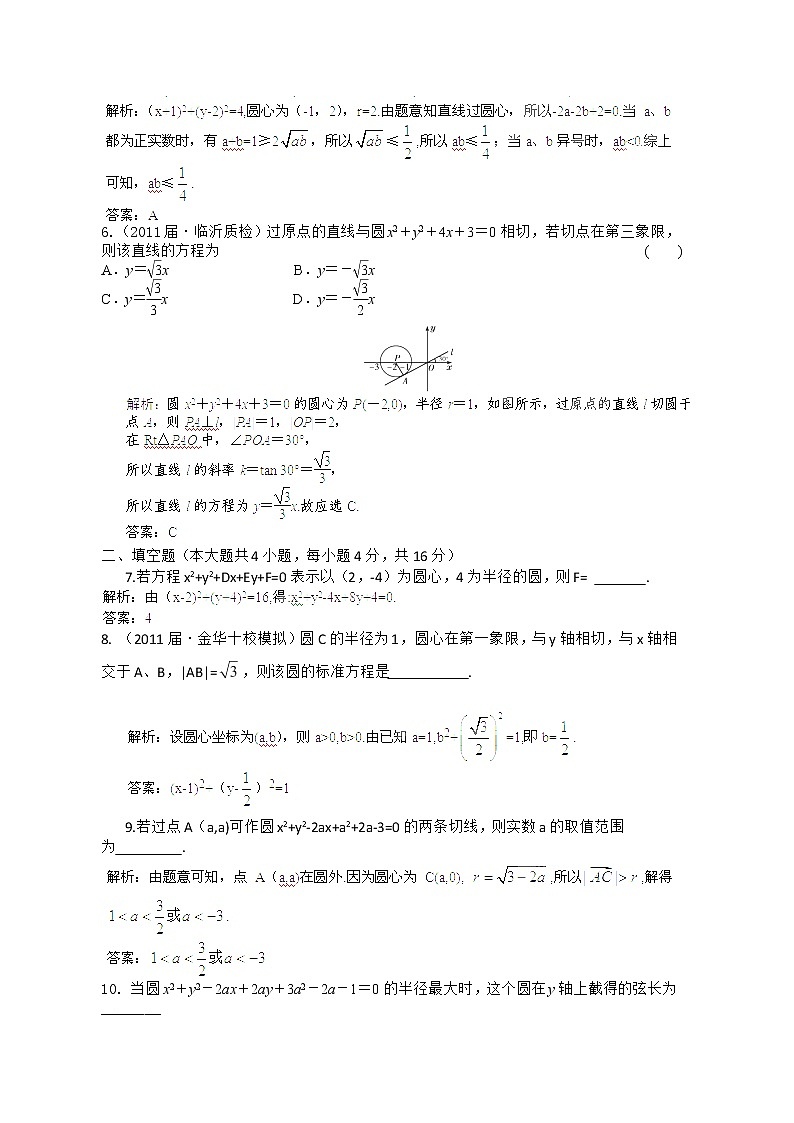 解析:(x+1)²+(y-2)²=4,圆心为（-1，2），r=2.由题意知直线过圆心，所以-2a-2b+2=0.当 a、b
都为正实数时，有 a+b=1≥2√ab，所以√ab≤1/2,所以 ab≤1/4；当 a、b 异号时，ab<0.综上
可知，ab≤1/4.
答案：A
6.（2011届·临沂质检）过原点的直线与圆x²＋y²＋4x＋3＝0 相切，若切点在第三象限，
则该直线的方程为 (　　)
A．y＝√3x B．y＝－√3x
C．y＝√3/3x D．y＝－√3/2x
y
P l
−3 −2 −1 O 30° x
A
解析：圆 x²＋y²＋4x＋3＝0 的圆心为 P(－2,0)，半径 r＝1，如图所示，过原点的直线 l 切圆于
点 A，则 PA⊥l，|PA|＝1，|OP|＝2，
在 Rt△PAO 中，∠POA＝30°，
所以直线 l 的斜率 k＝tan 30°＝√3/3，
所以直线 l 的方程为 y＝√3/3x.故应选 C.
答案：C
二、填空题（本大题共 4 小题，每小题 4 分，共 16 分）
7.若方程 x²+y²+Dx+Ey+F=0 表示以（2，-4）为圆心，4 为半径的圆，则 F= _______.
解析：由（x-2)²+(y+4)²=16,得:x²+y²-4x+8y+4=0.
答案：4
8. （2011 届·金华十校模拟）圆 C 的半径为 1，圆心在第一象限，与 y 轴相切，与 x 轴相
交于 A、B，|AB|=√3，则该圆的标准方程是___________.
解析：设圆心坐标为(a,b)，则 a>0,b>0.由已知 a=1,b²+(√3/2)²=1,即 b=1/2.
答案：(x-1)²+（y-1/2）²=1
9.若过点 A（a,a)可作圆 x²+y²-2ax+a²+2a-3=0 的两条切线，则实数 a 的取值范围
为_________.
解析：由题意可知，点 A（a,a)在圆外.因为圆心为 C(a,0), r=√3-2a,所以|AC|>r,解得
1<a<3/2或a<-3.
答案：1<a<3/2或a<-3
10．当圆 x²＋y²－2ax＋2ay＋3a²－2a－1＝0 的半径最大时，这个圆在y 轴上截得的弦长为
________